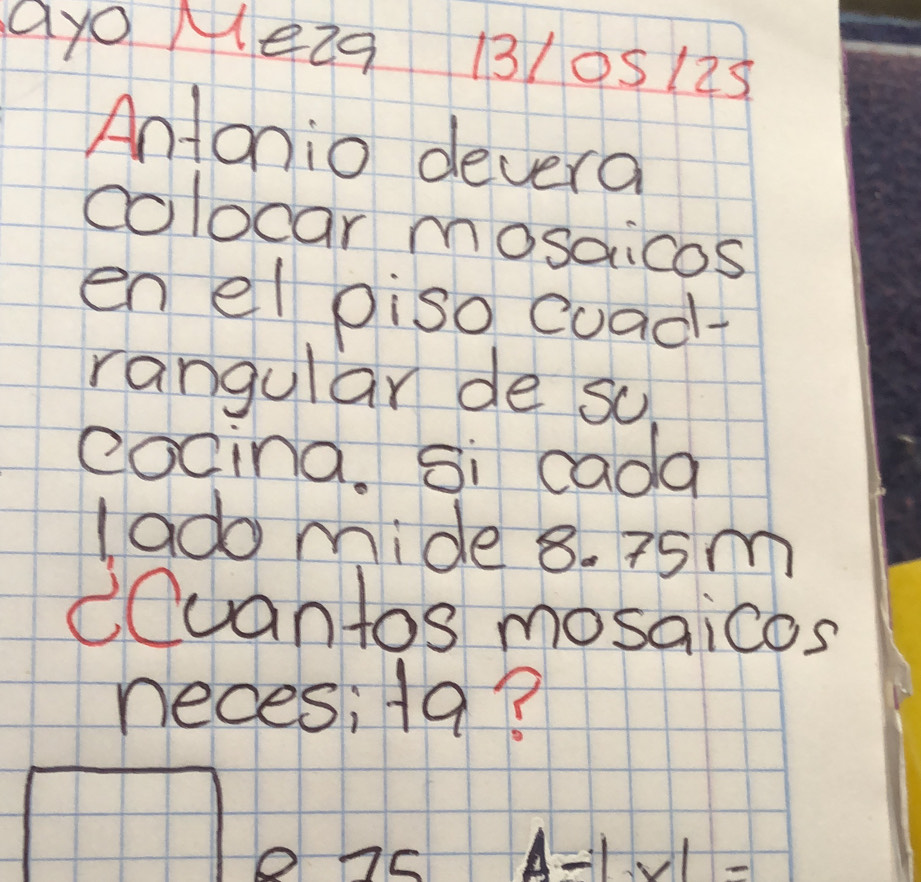 ayo Meza 13/05/25
Antonio devera
colocar mosaicos
en el piso cuad-
rangular de su
cocina. Si cada
lado mide 8.75m
¿Cuantos mosaicos
necesita?
8.75 A=LxL=